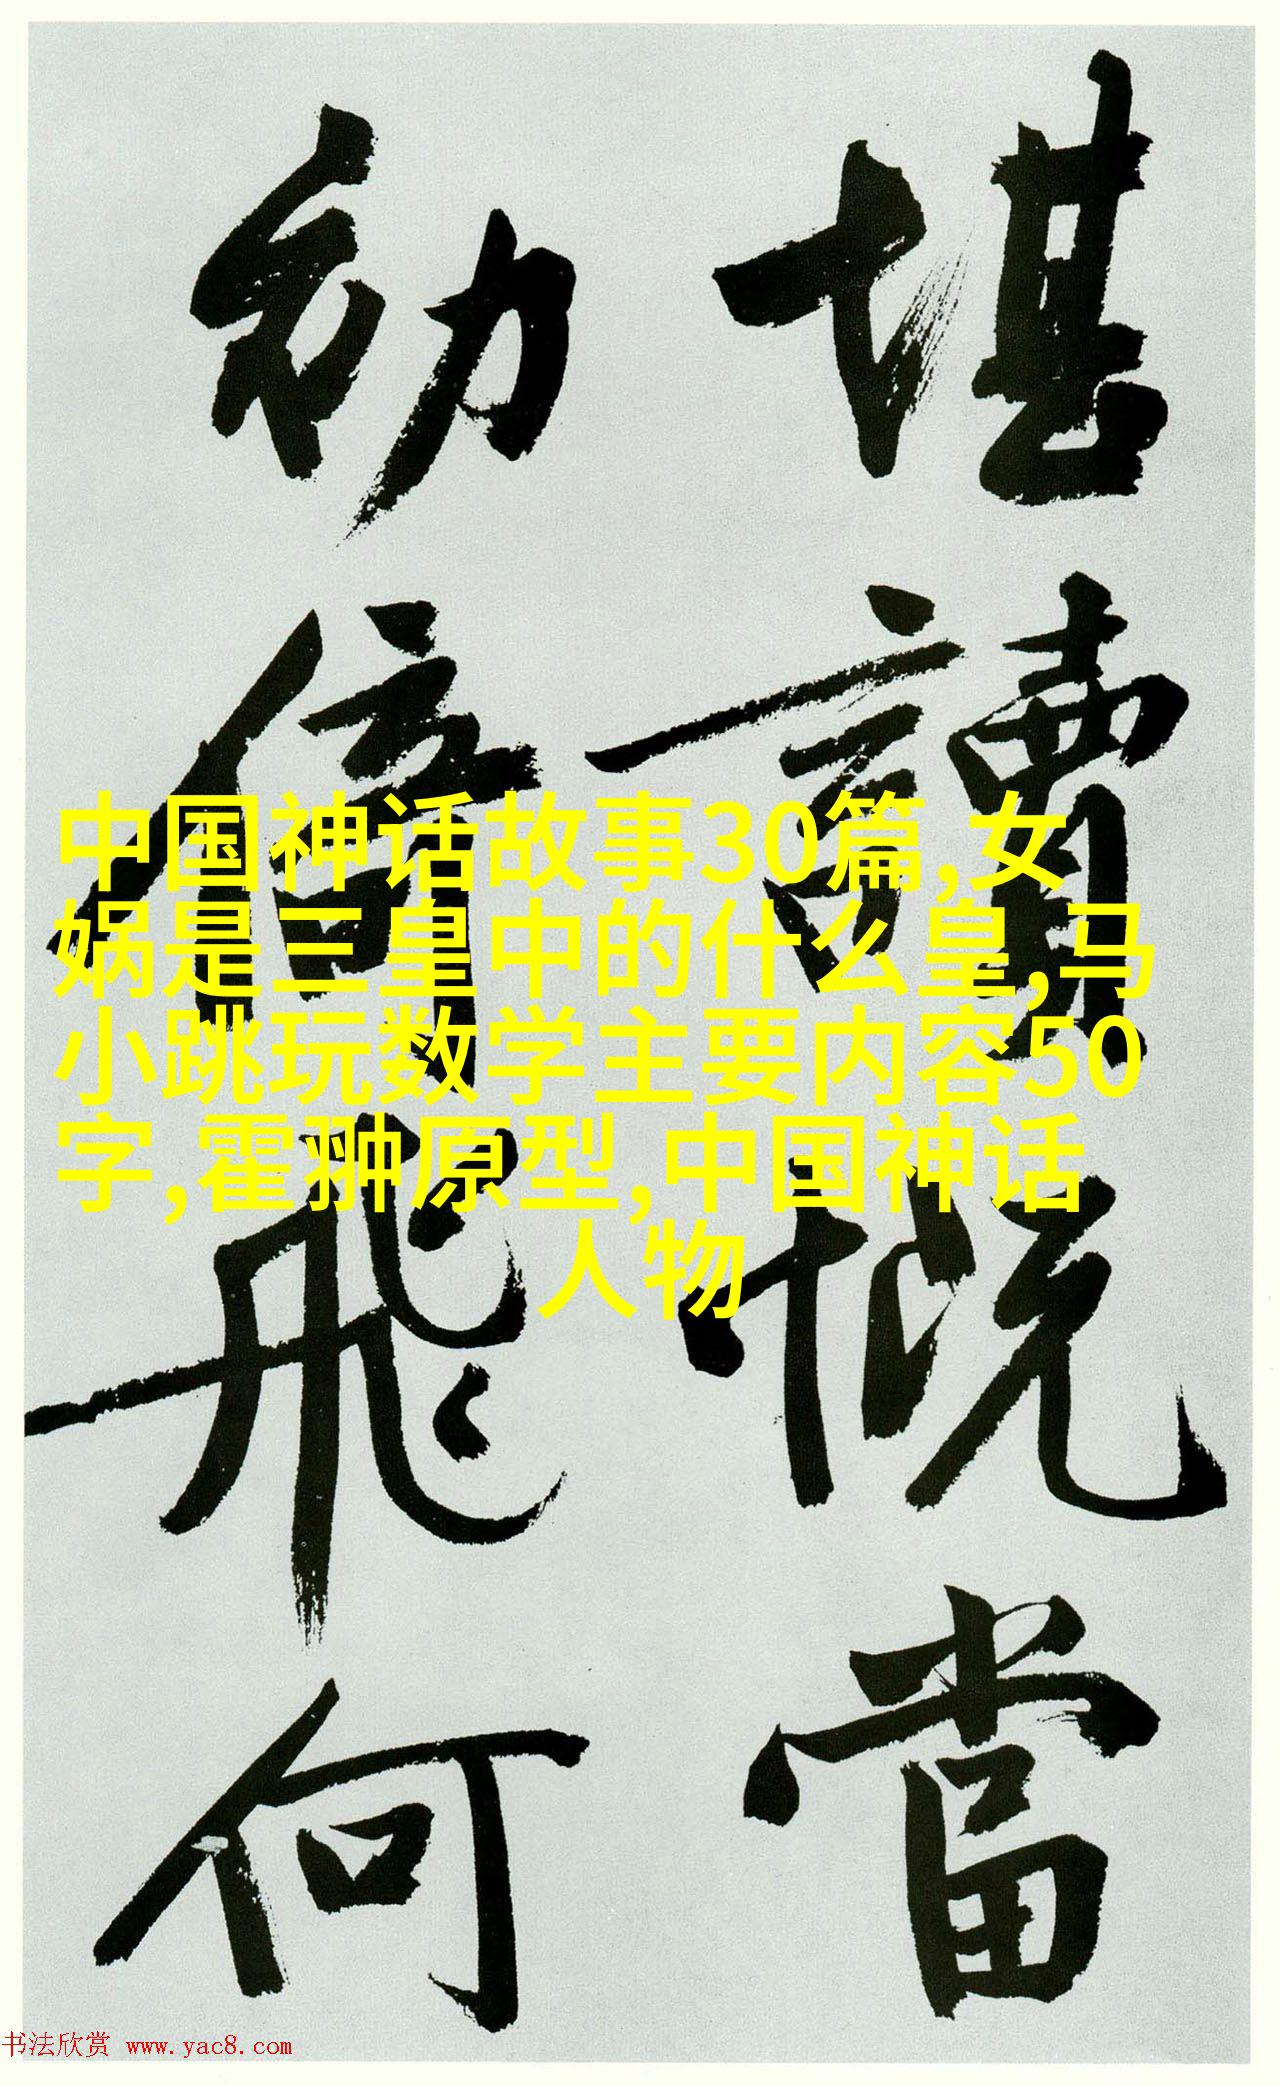 堪讀慨當
初信飛何
中国神话故事30篇,女
娲是三皇中的什么皇,马
小跳玩数学主要内容50
字,霍翀原型,中国神话
人物
书法欣赏 www.yac8.com